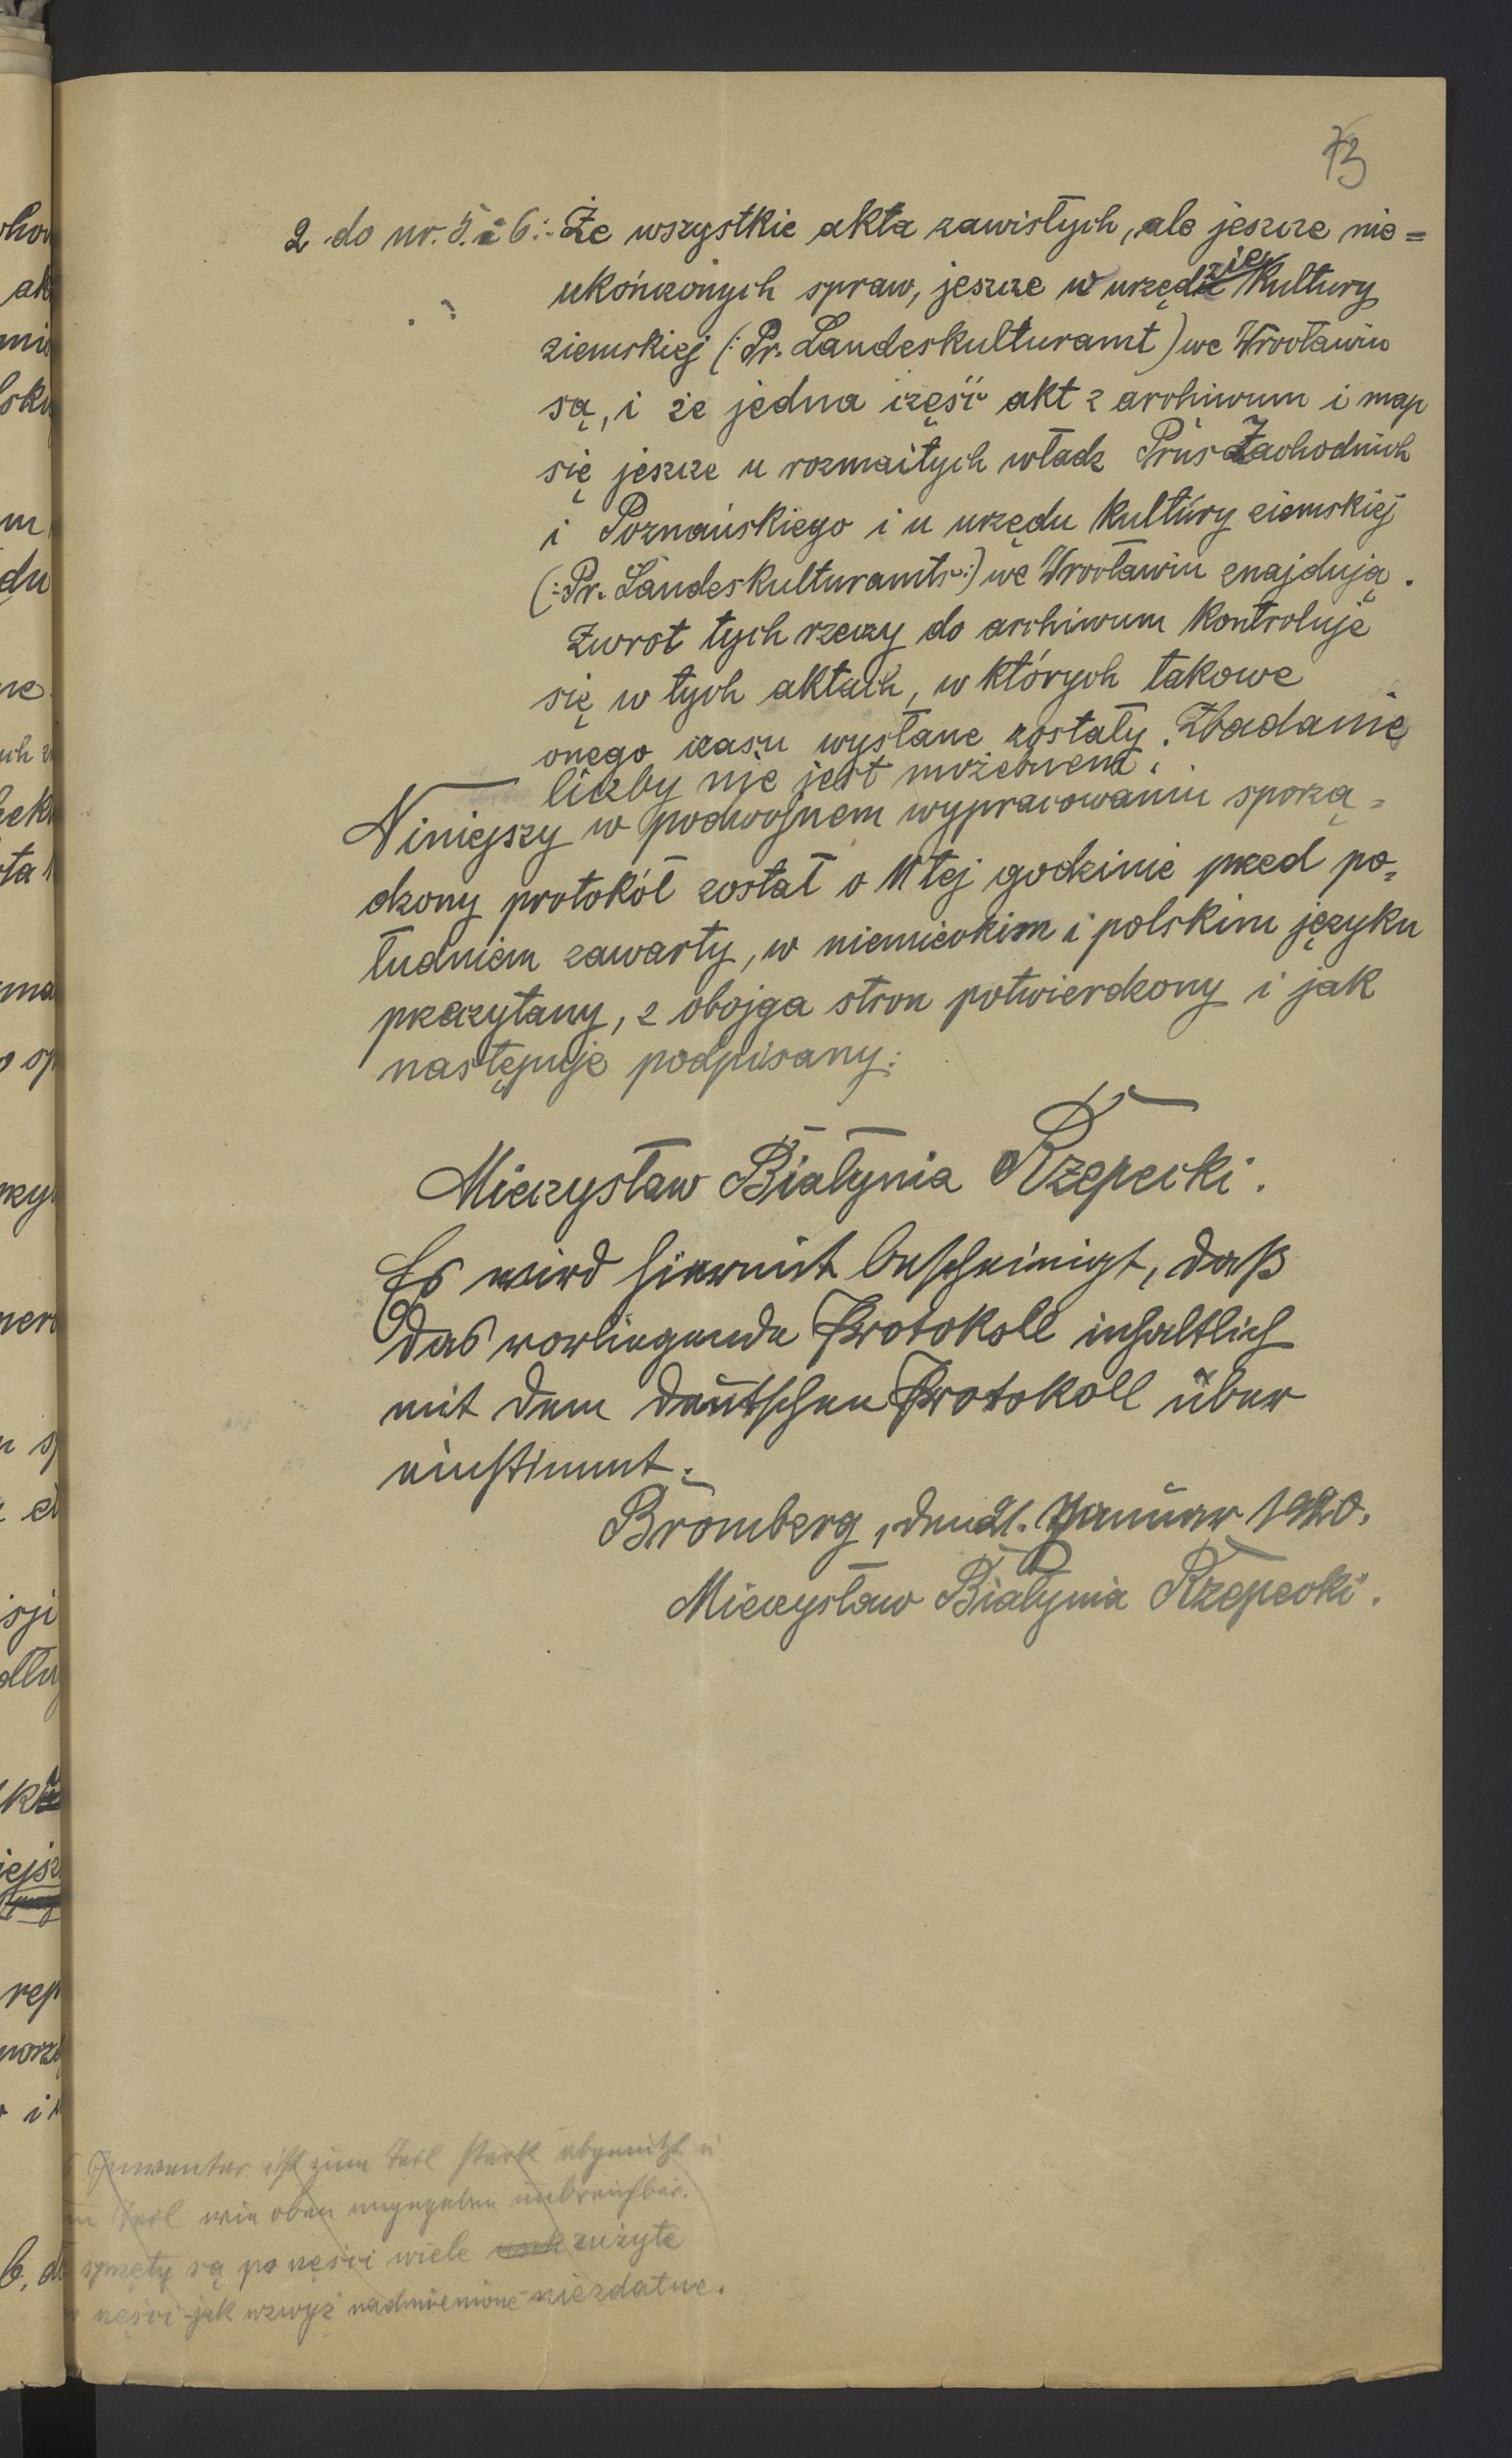 73
2 do nr. 5. i 6:- Że wszystkie akta zawisłych, ale jeszcze nie=
ukończonych spraw, jeszcze w urzędzie kultury
ziemskiej (: Pr. Landeskulturamt) we Wrocławiu
są, i że jedna część akt z archiwum i map
się jeszcze u rozmaitych władz Prus Zachodnich
i Poznańskiego i u urzędu kultury ziemskiej
(: Pr. Landeskulturamts :) we Wrocławiu znajdują.
Zwrot tych rzeczy do archiwum kontroluje
się w tych aktach, w których takowe
onego czasu wysłane zostały. Zbadanie
liczby nie jest możebnem.
Niniejszy w podwójnem wypracowaniu sporzą=
dzony protokół został o 11tej godzinie przed po=
łudniem zawarty, w niemieckim i polskim języku
przeczytany, z obojga stron potwierdzony i jak
następuje podpisany:
Mieczysław Białynia Rzepecki.
Es wird hiermit bescheinigt, daß
das vorliegende Protokoll inhaltlich
mit dem deutschen Protokoll über
einstimmt.
Bromberg, den 21. Januar 1920.
Mieczysław Białynia Rzepecki.
Inventar ist zum Teil stark abgenützt u
Teil wie oben angegeben unbrauchbar.
sprzęty są po części wiele zużyte
części jak wzwyż nadmienione niezdatne.